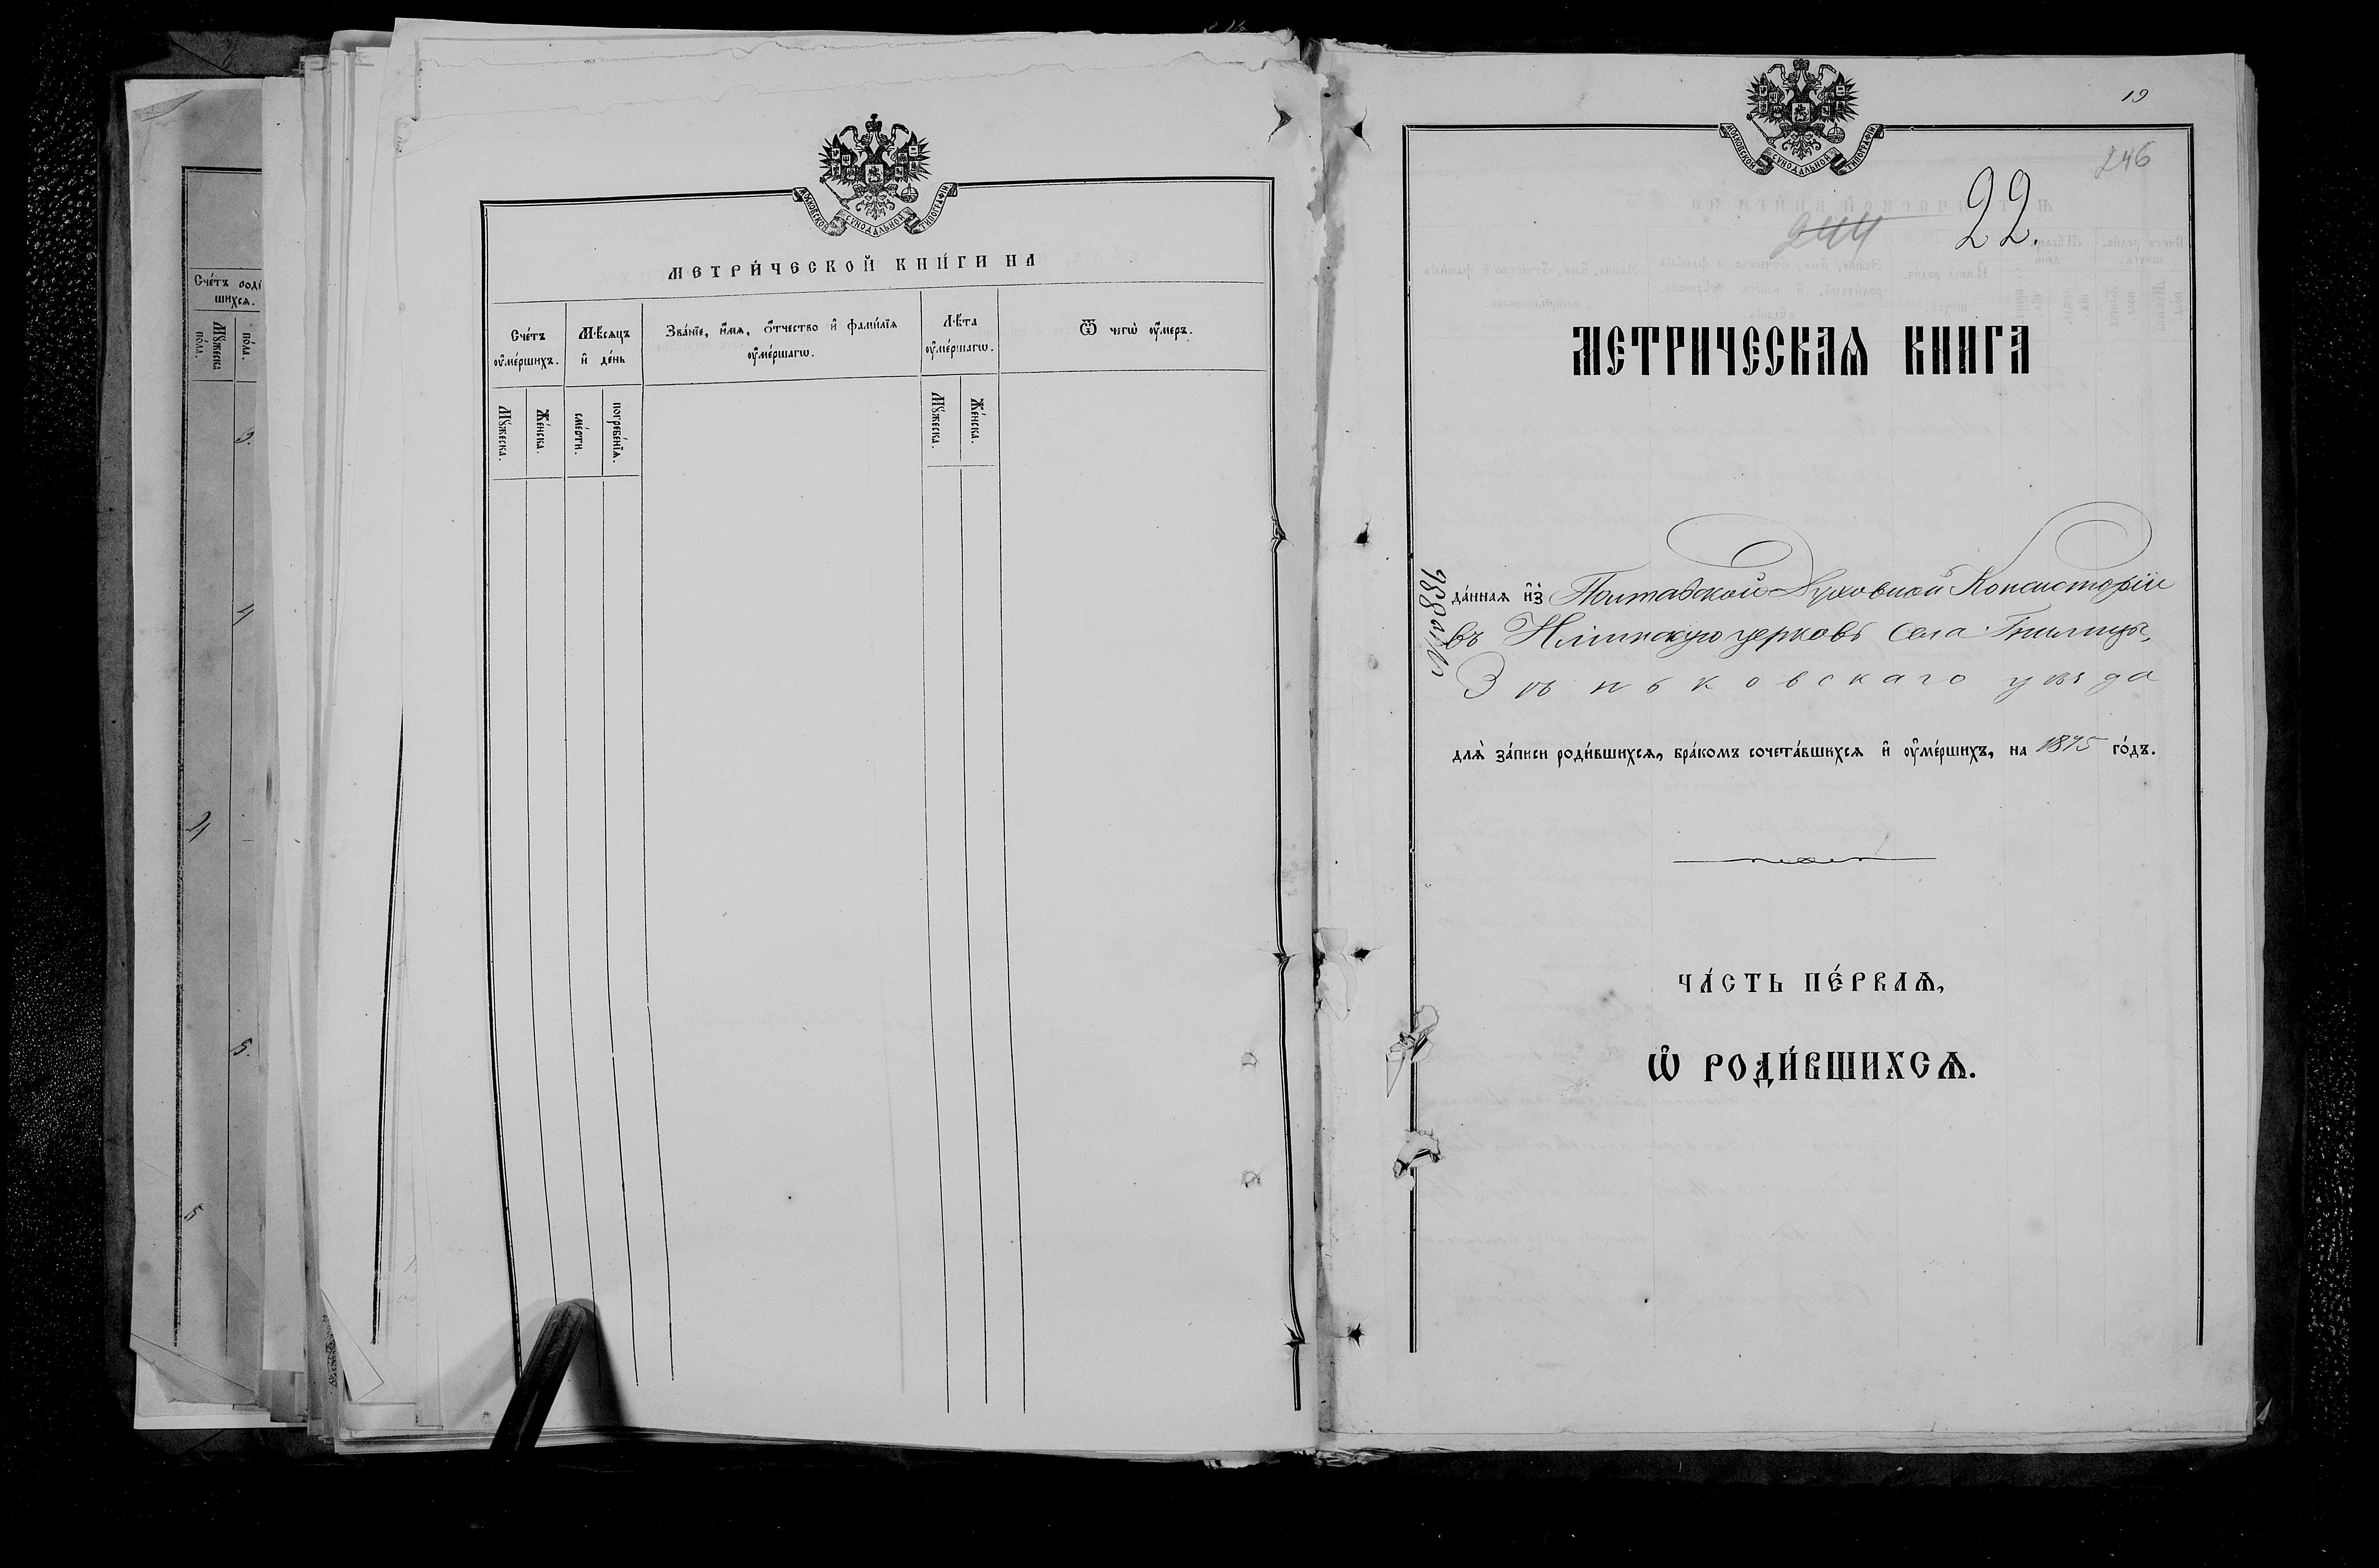 Счéтъ роди
шихсѧ.
Мꙋжеска
пóла.
пóла.
3.
4
4
5.
5
МОСКОВСКОЙ СѴНОДАЛЬНОЙ ТИПОГРАФІИ
МЕТРИ́ЧЕСКОЙ КНИ́ГИ НА
Счéтъ
ᲂу҆мéршихъ.
Мѣ́сѧцъ
и҆ дéнь
Звáнїе, и҆́мѧ, ѻ҆́тчество и҆ фами́лїѧ
ᲂу҆мéршагѡ.
Лѣ́та
ᲂу҆мéршагѡ.
Ѿ чегѡ̀ ᲂу҆́меръ.
Мꙋ́жеска.
Жéнска.
смéрти.
погребéнїѧ.
Мꙋ́жеска.
Жéнска.
19
МОСКОВСКОЙ СѴНОДАЛЬНОЙ ТИПОГРАФІИ
246
244
22.
МЕТРИЧЕСКАѦ КНИГА
№ 8886
дáннаѧ и҆з̾ Полтавской Духовной Консисторіи
въ Ильинскую церковь села Гнилицы,
Зѣньковскаго уѣзда
длѧ̀ зáписи роди́вшихсѧ, брáкомъ сочетáвшихсѧ и҆ ᲂу҆мéршихъ, на 1875 гóдъ.
ЧА́СТЬ ПÉРВАѦ,
Ѡ҆ РОДИ́ВШИХСѦ.